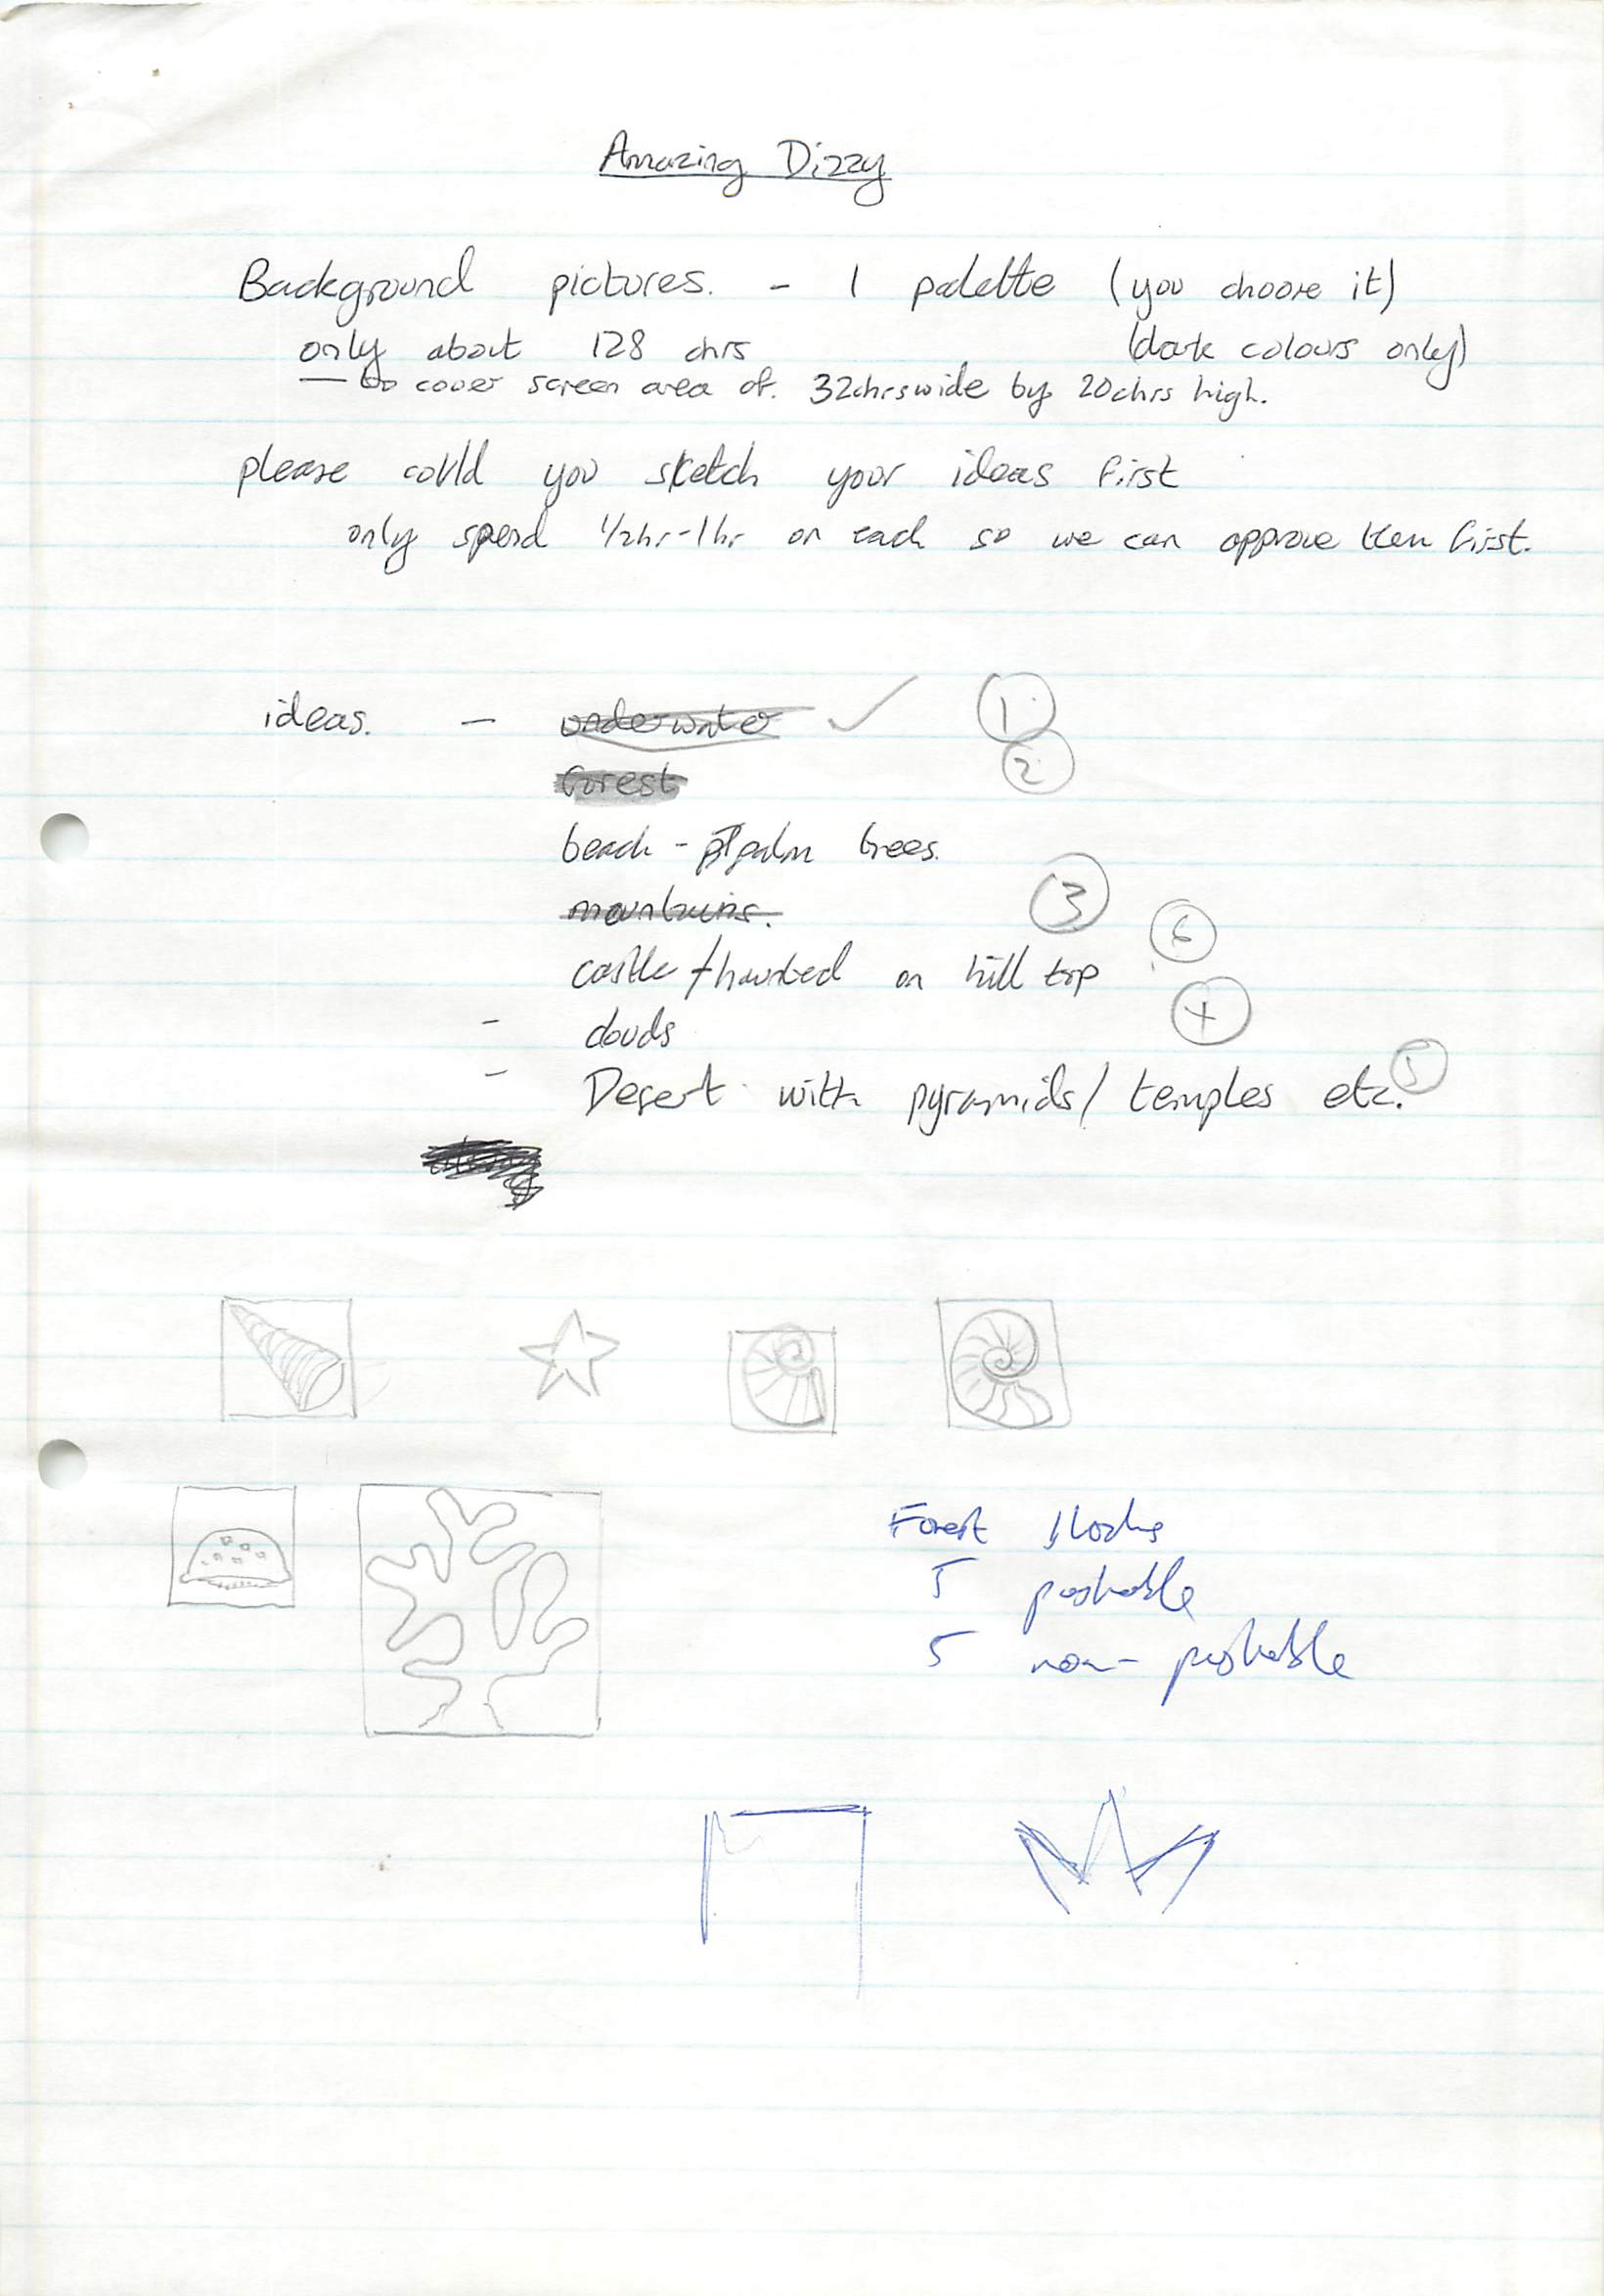 Amazing Dizzy
Background pictures. - 1 palette (you choose it)
only about 128 chrs (dark colours only)
— to cover screen area of. 32chrs wide by 20chrs high.
please could you sketch your ideas first
only spend 1/2hr-1hr on each so we can approve them first.
ideas. - underwater ✓ 1
forest 2
beach - palm trees.
mountains. 3
castle / haunted on hill top 6
- clouds 4
- Desert with pyramids / temples etc. 5
Forest blocks
5 pushable
5 non-pushable